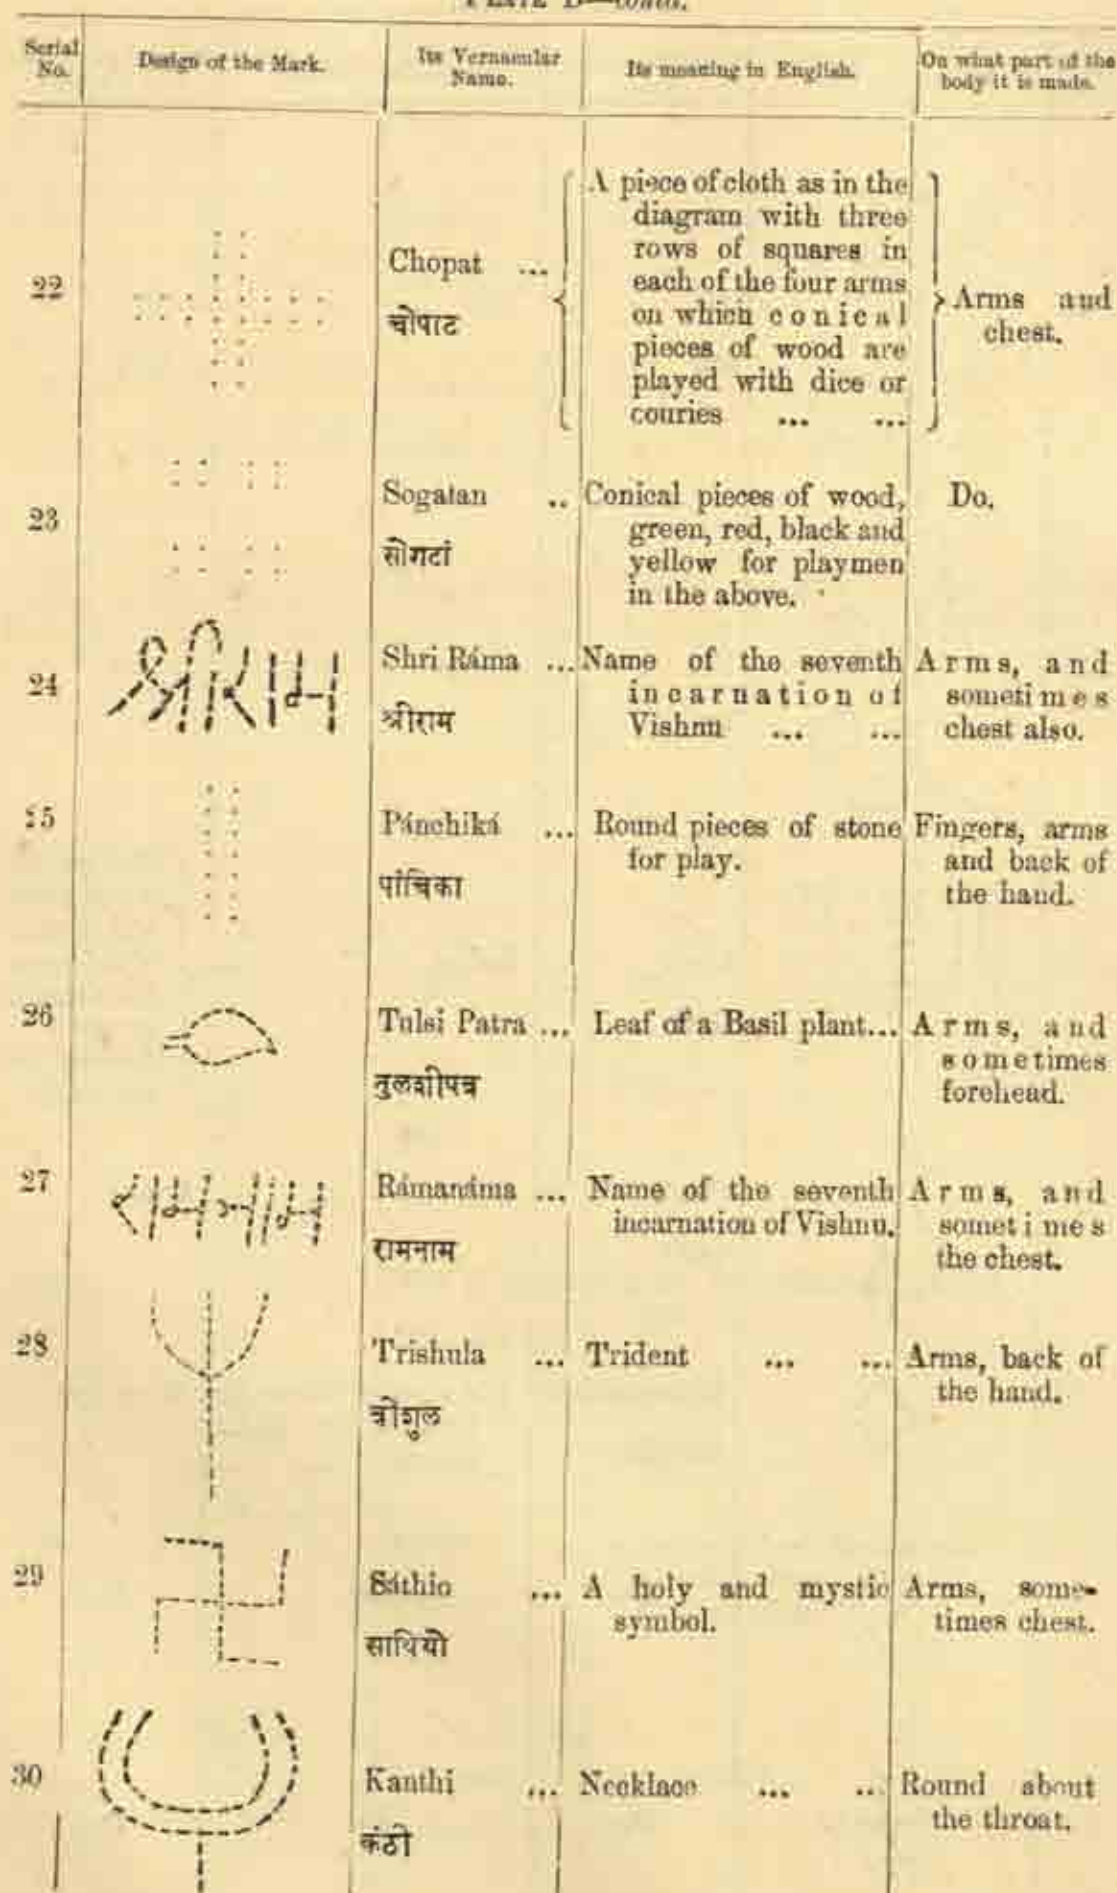 PLATE B—contd.
Serial No.
Design of the Mark.
Its Vernamular Name.
Its meaning in English.
On what part of the body it is made.
22
Chopat ...
चोपाट
A piece of cloth as in the
diagram with three
rows of squares in
each of the four arms
on which conical
pieces of wood are
played with dice or
couries ... ...
Arms and
chest.
23
Sogatan ..
सोगटां
Conical pieces of wood,
green, red, black and
yellow for playmen
in the above.
Do.
24
श्रीराम
Shri Ráma ...
श्रीराम
Name of the seventh
incarnation of
Vishnu ... ...
Arms, and
sometimes
chest also.
25
Pánchiká ...
पांचिका
Round pieces of stone
for play.
Fingers, arms
and back of
the hand.
26
Tulsi Patra ...
तुलशीपत्र
Leaf of a Basil plant...
Arms, and
sometimes
forehead.
27
रामनाम
Rámanáma ...
रामनाम
Name of the seventh
incarnation of Vishnu.
Arms, and
sometimes
the chest.
28
Trishula ...
त्रीशुल
Trident ... ...
Arms, back of
the hand.
29
Sáthio ...
साथियो
A holy and mystic
symbol.
Arms, some-
times chest.
30
Kanthi ...
कंठी
Necklace ... ...
Round about
the throat.